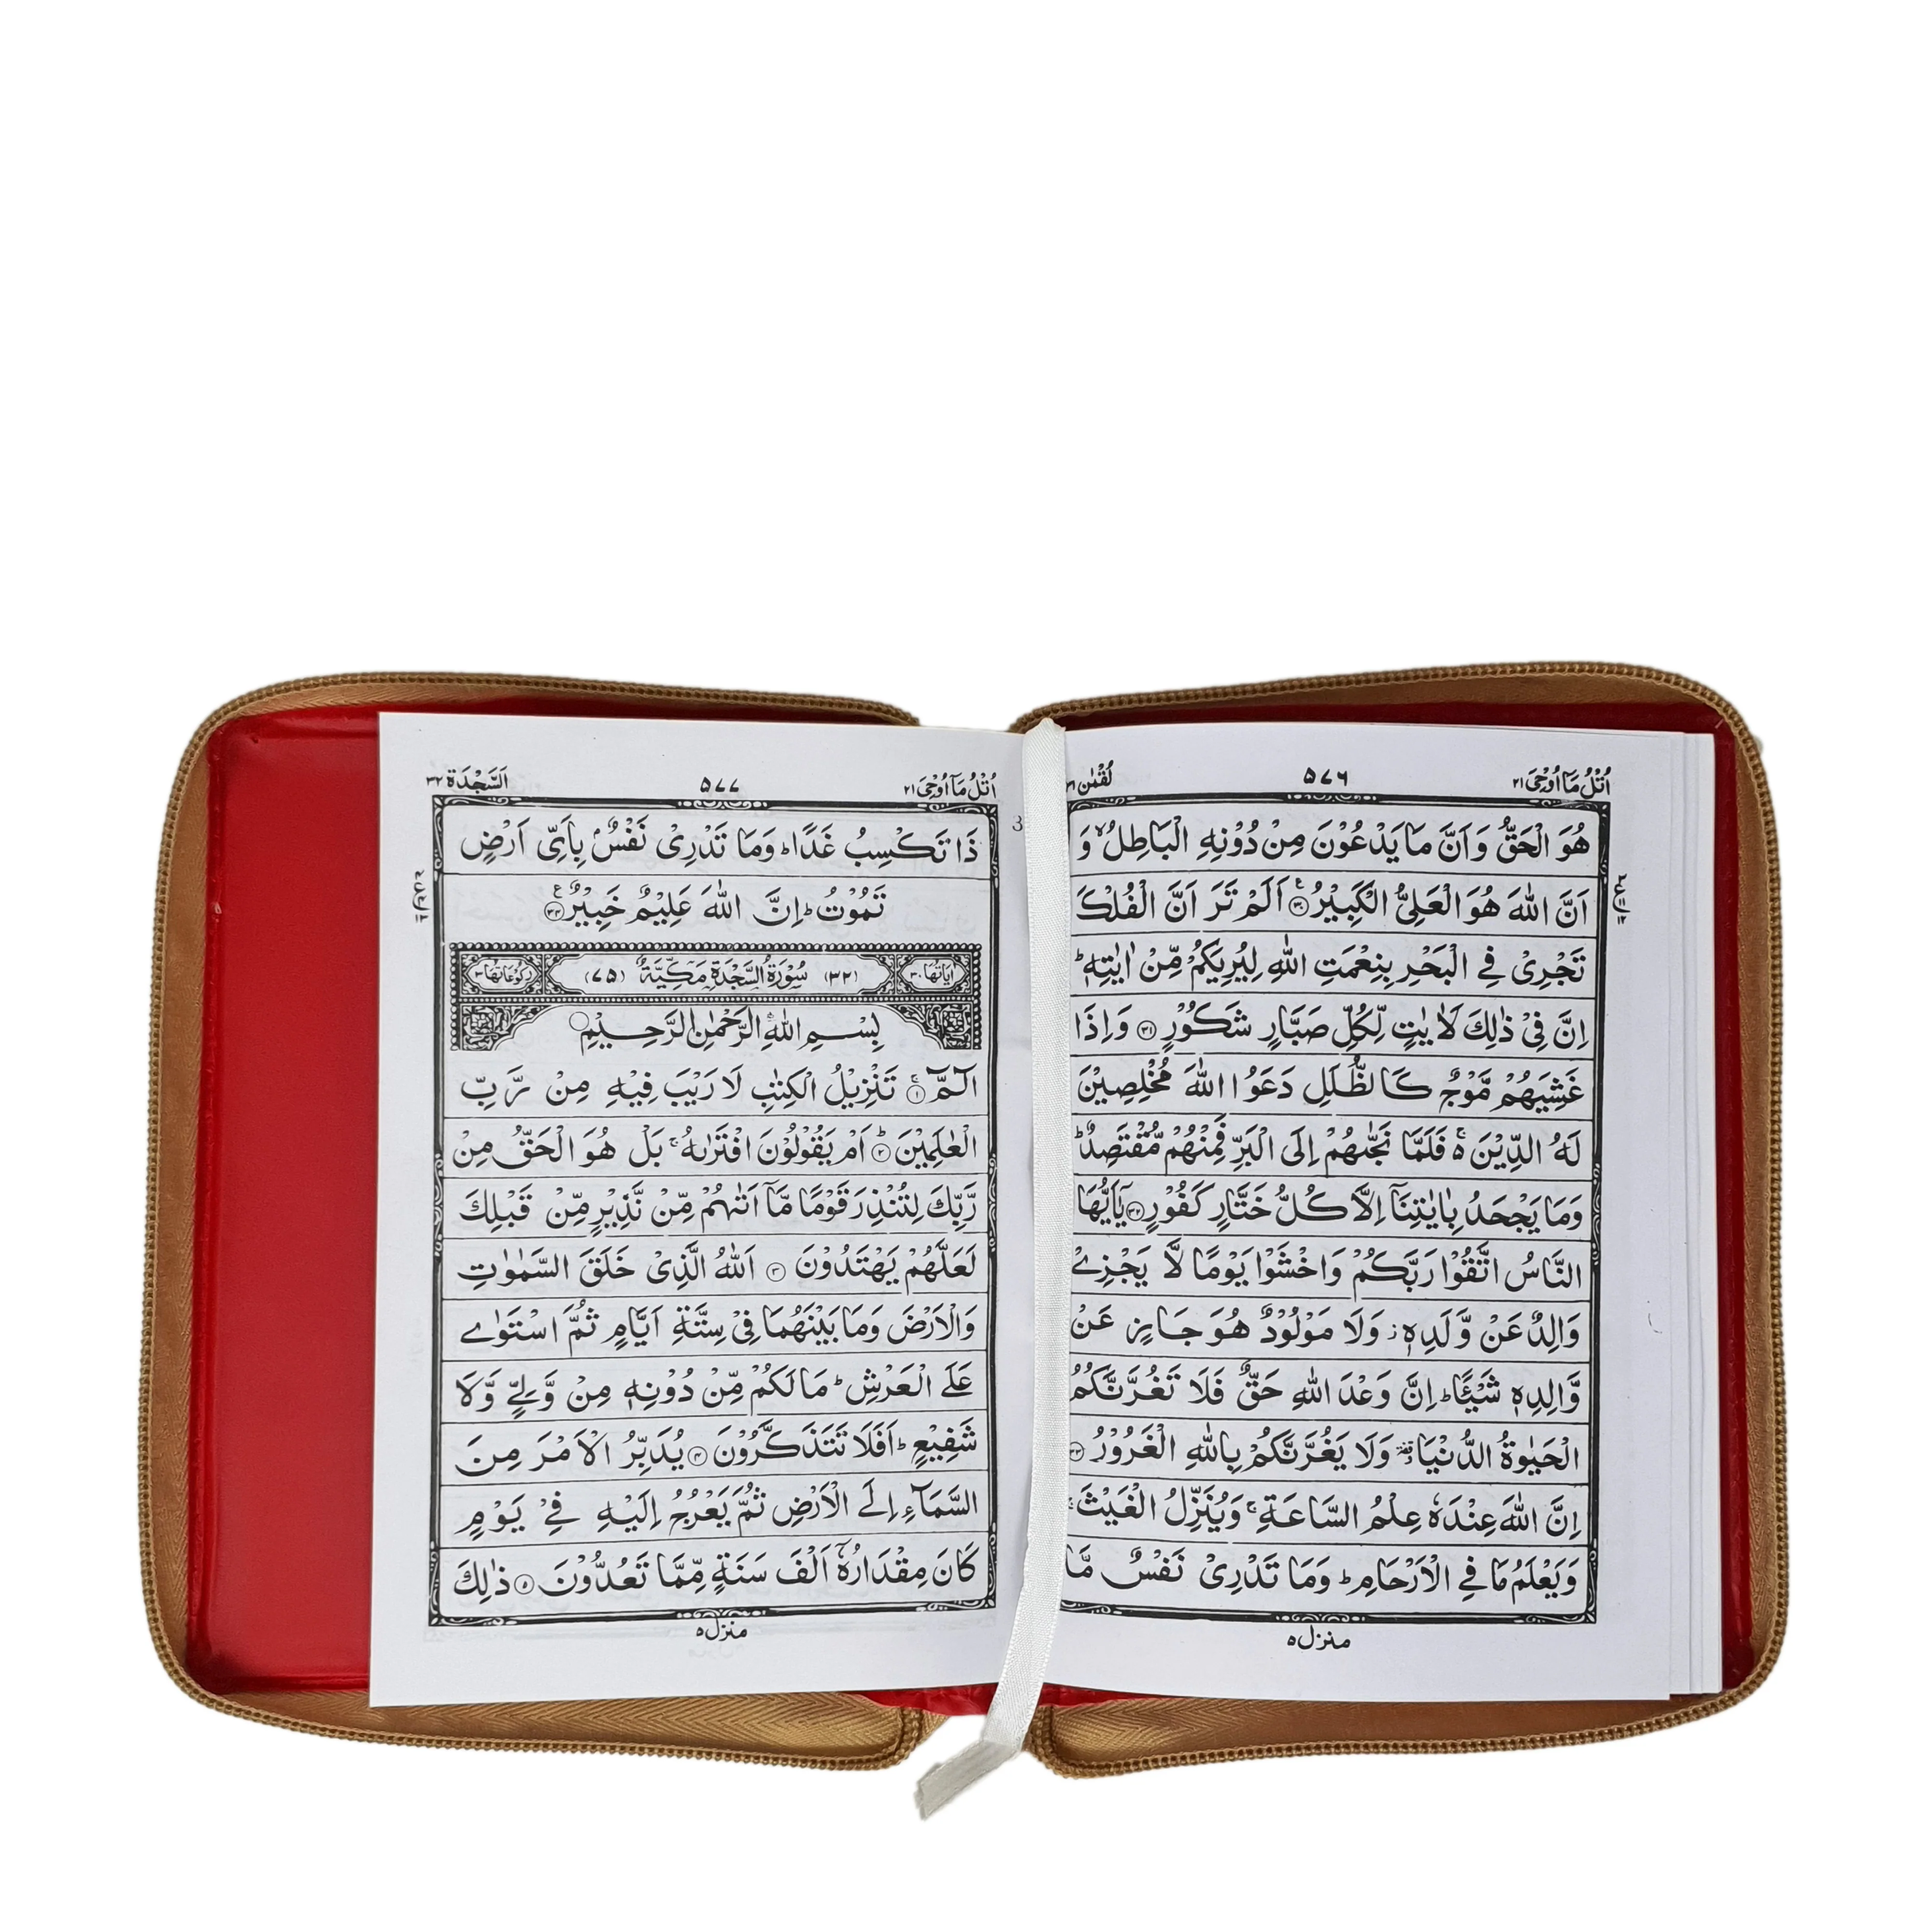 اُتْلُ مَآ اُوْحِیَ ۲۱
۵۷۶
لُقْمٰن
هُوَ الْحَقُّ وَاَنَّ مَا یَدْعُوْنَ مِنْ دُوْنِهِ الْبَاطِلُ ۙ وَ
اَنَّ اللّٰهَ هُوَ الْعَلِیُّ الْكَبِیْرُ ۚ ۳۰ اَلَمْ تَرَ اَنَّ الْفُلْكَ
تَجْرِیْ فِی الْبَحْرِ بِنِعْمَتِ اللّٰهِ لِیُرِیَكُمْ مِّنْ اٰیٰتِهٖ ؕ
اِنَّ فِیْ ذٰلِكَ لَاٰیٰتٍ لِّكُلِّ صَبَّارٍ شَكُوْرٍ ۳۱ وَاِذَا
غَشِیَهُمْ مَّوْجٌ كَالظُّلَلِ دَعَوُا اللّٰهَ مُخْلِصِیْنَ
لَهُ الدِّیْنَ ۚ۬ فَلَمَّا نَجّٰىهُمْ اِلَی الْبَرِّ فَمِنْهُمْ مُّقْتَصِدٌ ؕ
وَمَا یَجْحَدُ بِاٰیٰتِنَاۤ اِلَّا كُلُّ خَتَّارٍ كَفُوْرٍ ۳۲ یٰۤاَیُّهَا
النَّاسُ اتَّقُوْا رَبَّكُمْ وَاخْشَوْا یَوْمًا لَّا یَجْزِیْ
وَالِدٌ عَنْ وَّلَدِهٖ ؗ وَلَا مَوْلُوْدٌ هُوَ جَازٍ عَنْ
وَّالِدِهٖ شَیْـًٔا ؕ اِنَّ وَعْدَ اللّٰهِ حَقٌّ فَلَا تَغُرَّنَّكُمُ
الْحَیٰوةُ الدُّنْیَا ۥ وَلَا یَغُرَّنَّكُمْ بِاللّٰهِ الْغَرُوْرُ ۳۳
اِنَّ اللّٰهَ عِنْدَهٗ عِلْمُ السَّاعَةِ ۚ وَیُنَزِّلُ الْغَیْثَ ۚ
وَیَعْلَمُ مَا فِی الْاَرْحَامِ ؕ وَمَا تَدْرِیْ نَفْسٌ مَّا
منزل ۵
اُتْلُ مَآ اُوْحِیَ ۲۱
۵۷۷
اَلسَّجْدَة ۳۲
ذَا تَكْسِبُ غَدًا ؕ وَمَا تَدْرِیْ نَفْسٌۢ بِاَیِّ اَرْضٍ
تَمُوْتُ ؕ اِنَّ اللّٰهَ عَلِیْمٌ خَبِیْرٌ ۳۴
اٰیَاتُهَا ۳۰
(۳۲) سُوْرَةُ السَّجْدَةِ مَكِّیَّةٌ (۷۵)
رُكُوْعَاتُهَا ۳
بِسْمِ اللّٰهِ الرَّحْمٰنِ الرَّحِیْمِ
الٓمّٓ ۚ ۱ تَنْزِیْلُ الْكِتٰبِ لَا رَیْبَ فِیْهِ مِنْ رَّبِّ
الْعٰلَمِیْنَ ؕ ۲ اَمْ یَقُوْلُوْنَ افْتَرٰىهُ ۚ بَلْ هُوَ الْحَقُّ مِنْ
رَّبِّكَ لِتُنْذِرَ قَوْمًا مَّاۤ اَتٰىهُمْ مِّنْ نَّذِیْرٍ مِّنْ قَبْلِكَ
لَعَلَّهُمْ یَهْتَدُوْنَ ۳ اَللّٰهُ الَّذِیْ خَلَقَ السَّمٰوٰتِ
وَالْاَرْضَ وَمَا بَیْنَهُمَا فِیْ سِتَّةِ اَیَّامٍ ثُمَّ اسْتَوٰی
عَلَی الْعَرْشِ ؕ مَا لَكُمْ مِّنْ دُوْنِهٖ مِنْ وَّلِیٍّ وَّلَا
شَفِیْعٍ ؕ اَفَلَا تَتَذَكَّرُوْنَ ۴ یُدَبِّرُ الْاَمْرَ مِنَ
السَّمَآءِ اِلَی الْاَرْضِ ثُمَّ یَعْرُجُ اِلَیْهِ فِیْ یَوْمٍ
كَانَ مِقْدَارُهٗۤ اَلْفَ سَنَةٍ مِّمَّا تَعُدُّوْنَ ۵ ذٰلِكَ
منزل ۵